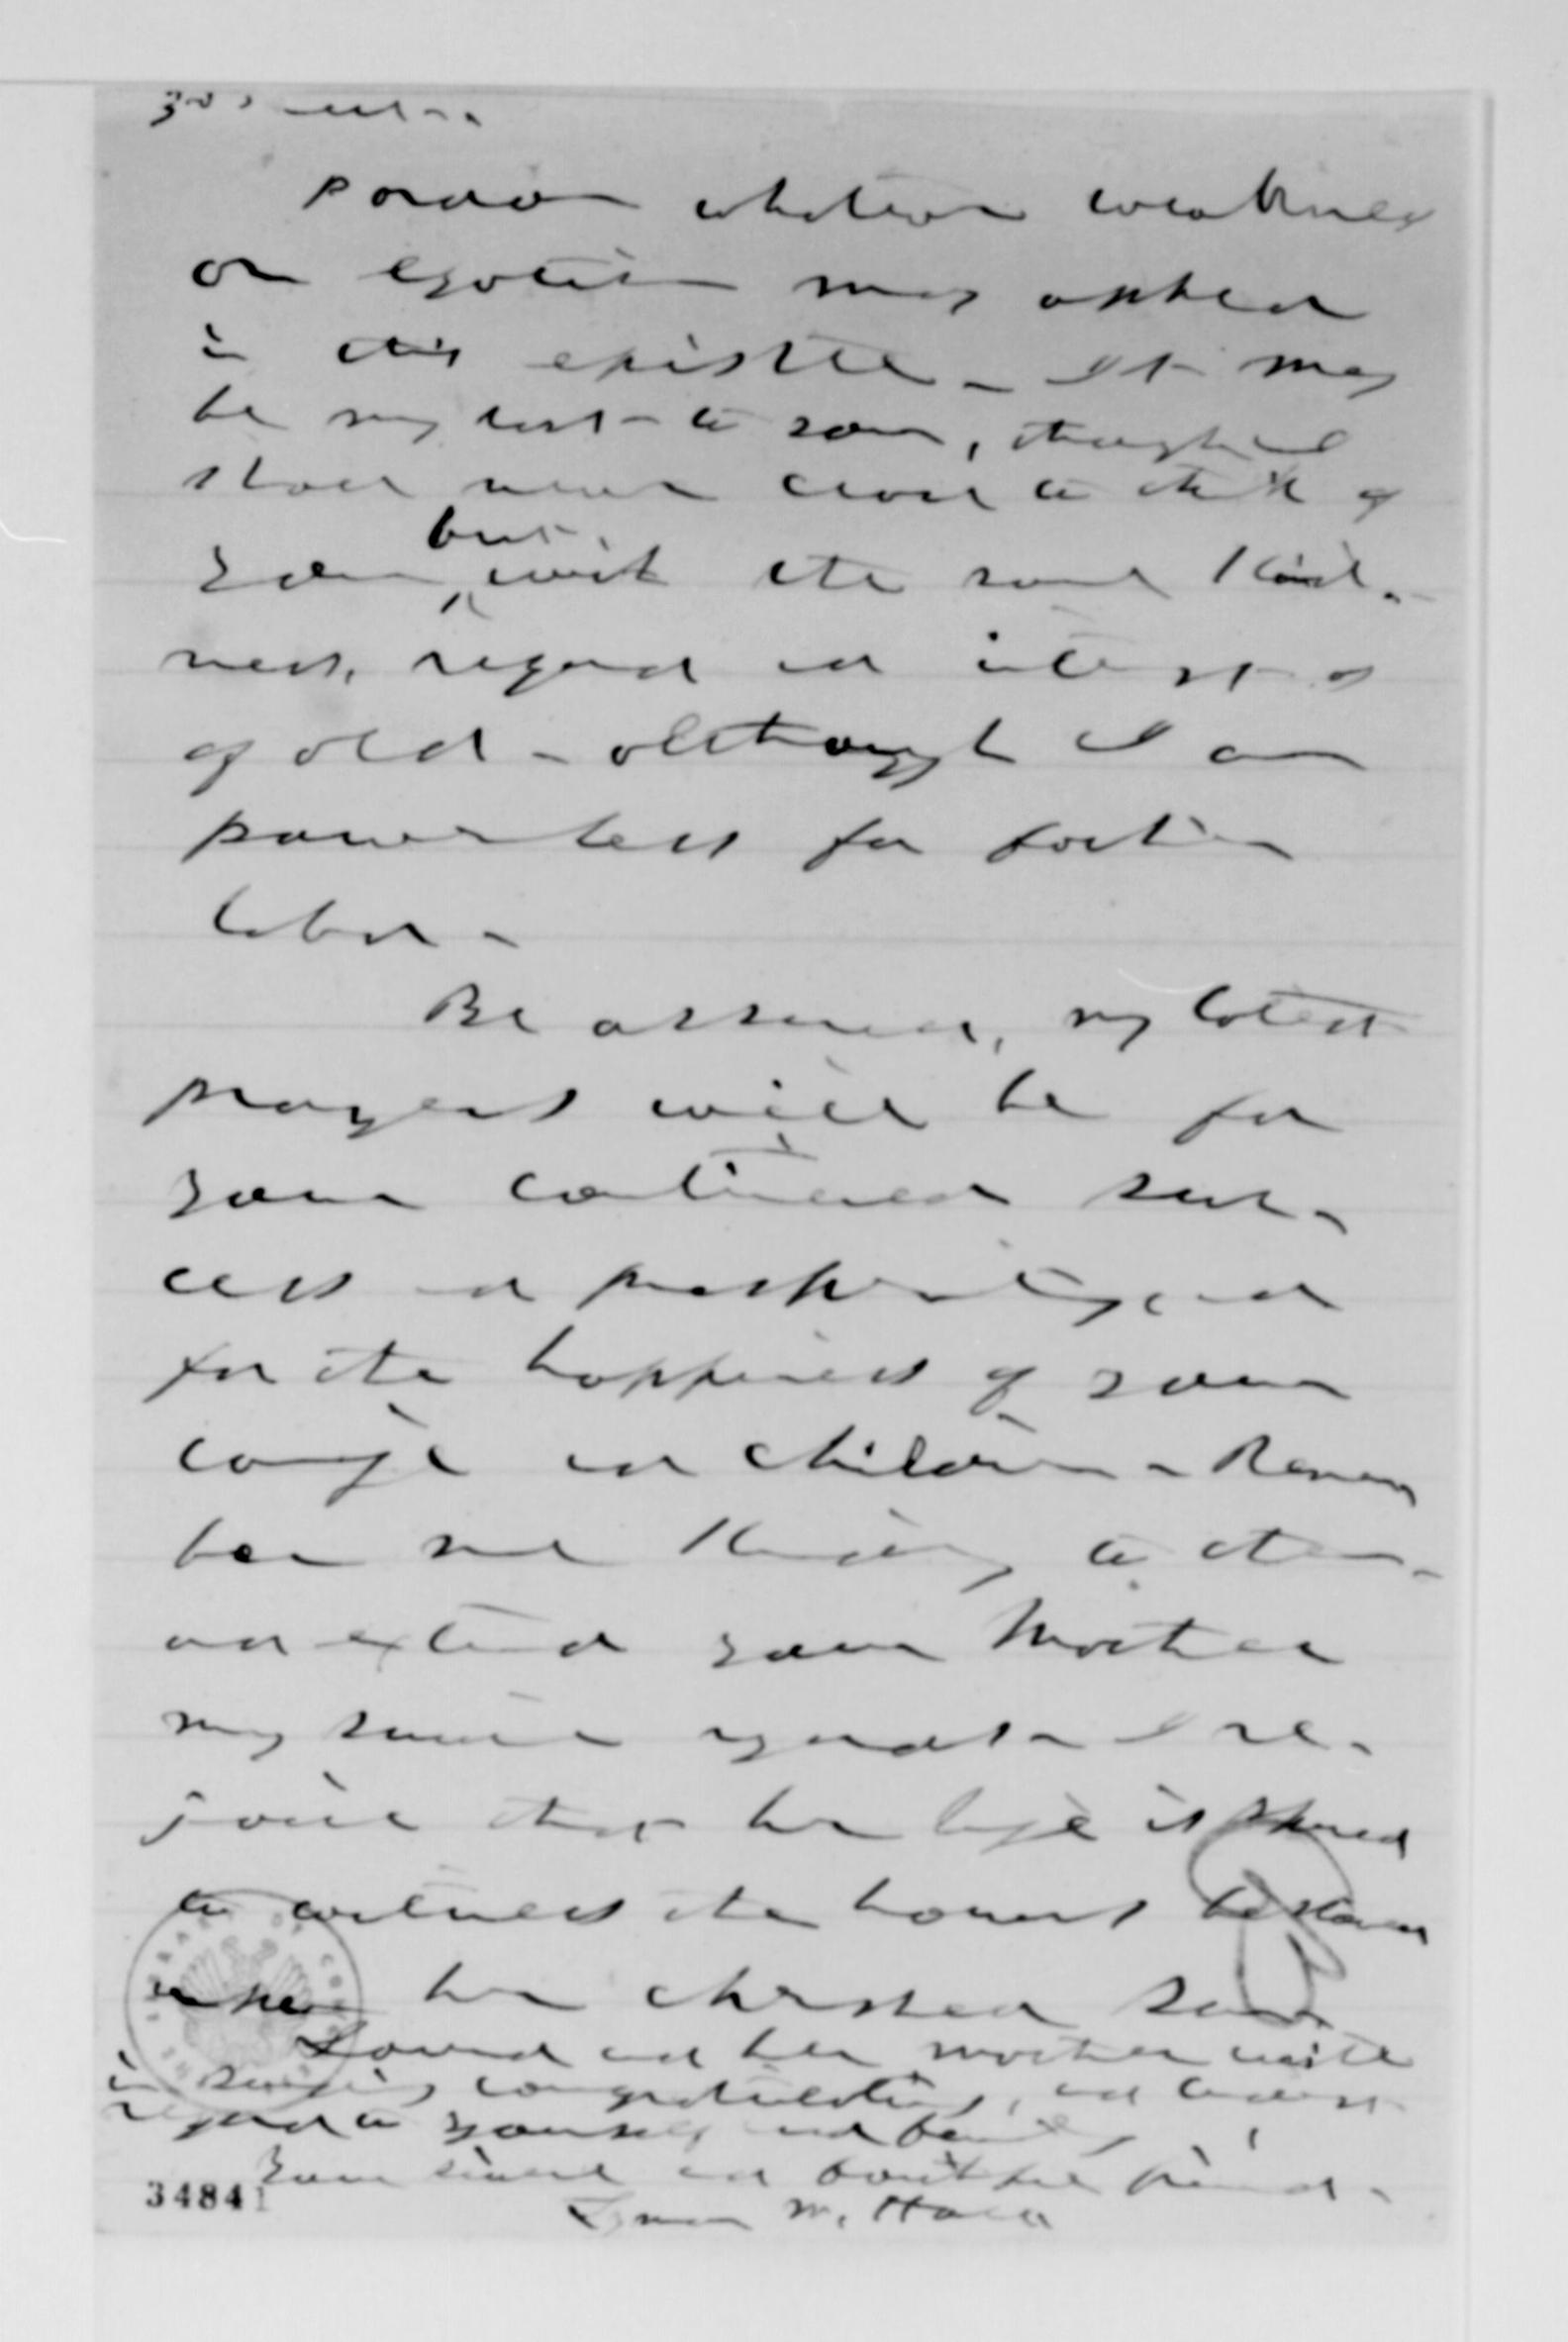 Pardon whatever weakness
or egotism may appear
in this epistle - It may
be my last to you, though I
shall never cease to think of
but
you with the same kind-
ness, regard and interest as
of old - although I am
powerless for further
labor -
Be assured, my latest
prayers will be for
your continued suc-
cess and prosperity, and
for the happiness of your
wife and children - Remem
ber me kindly to them -
and extend your Mother
my sincere regards - I re-
joice that her life is spared
to witness the honors bestowed
upon her cherished son
Laura and her mother unite
in sending congratulations, and kindest
regard to yourself and family,
Your sincere and faithful friend -
Lyman W. Hall
34841